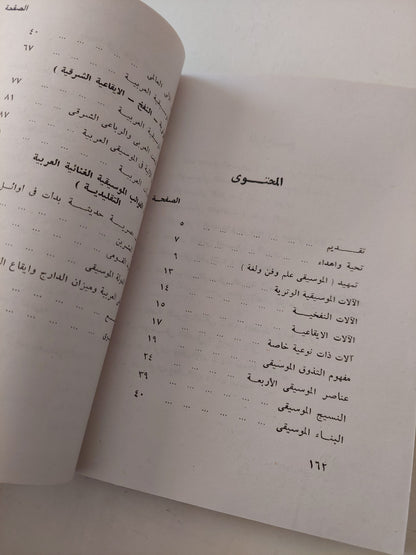 المحتوى
الصفحة
تقديم ... ... ... ... ... ... ٥
تحية واهداء ... ... ... ... ... ٧
تمهيد ( الموسيقى علم وفن ولغة ) ... ... ٩
الآلات الموسيقية الوترية ... ... ... ١٣
الآلات النفخية ... ... ... ... ١٤
الآلات الايقاعية ... ... ... ... ١٥
آلات ذات نوعية خاصة ... ... ... ١٧
مفهوم التذوق الموسيقى ... ... ... ١٩
عناصر الموسيقى الأربعة ... ... ... ٢٤
النسيج الموسيقى ... ... ... ... ٣٩
البناء الموسيقى ... ... ... ... ٤٠
١٦٢
الصفحة
العالمى ... ... ٤٠
العربية ... ... ٦٧
النفخ – الايقاعية الشرقية )
العربية ... ... ٧٧
العربى والرباعى الشرقى ... ٨١
فى الموسيقى العربية ... ٨٧
العربية ... ...
الموسيقية الغنائية العربية
التقليدية )
حديثة بدأت فى اوائل
القومى ... ...
الموسيقى ... ...
العربية وميزان الدارج وايقاع